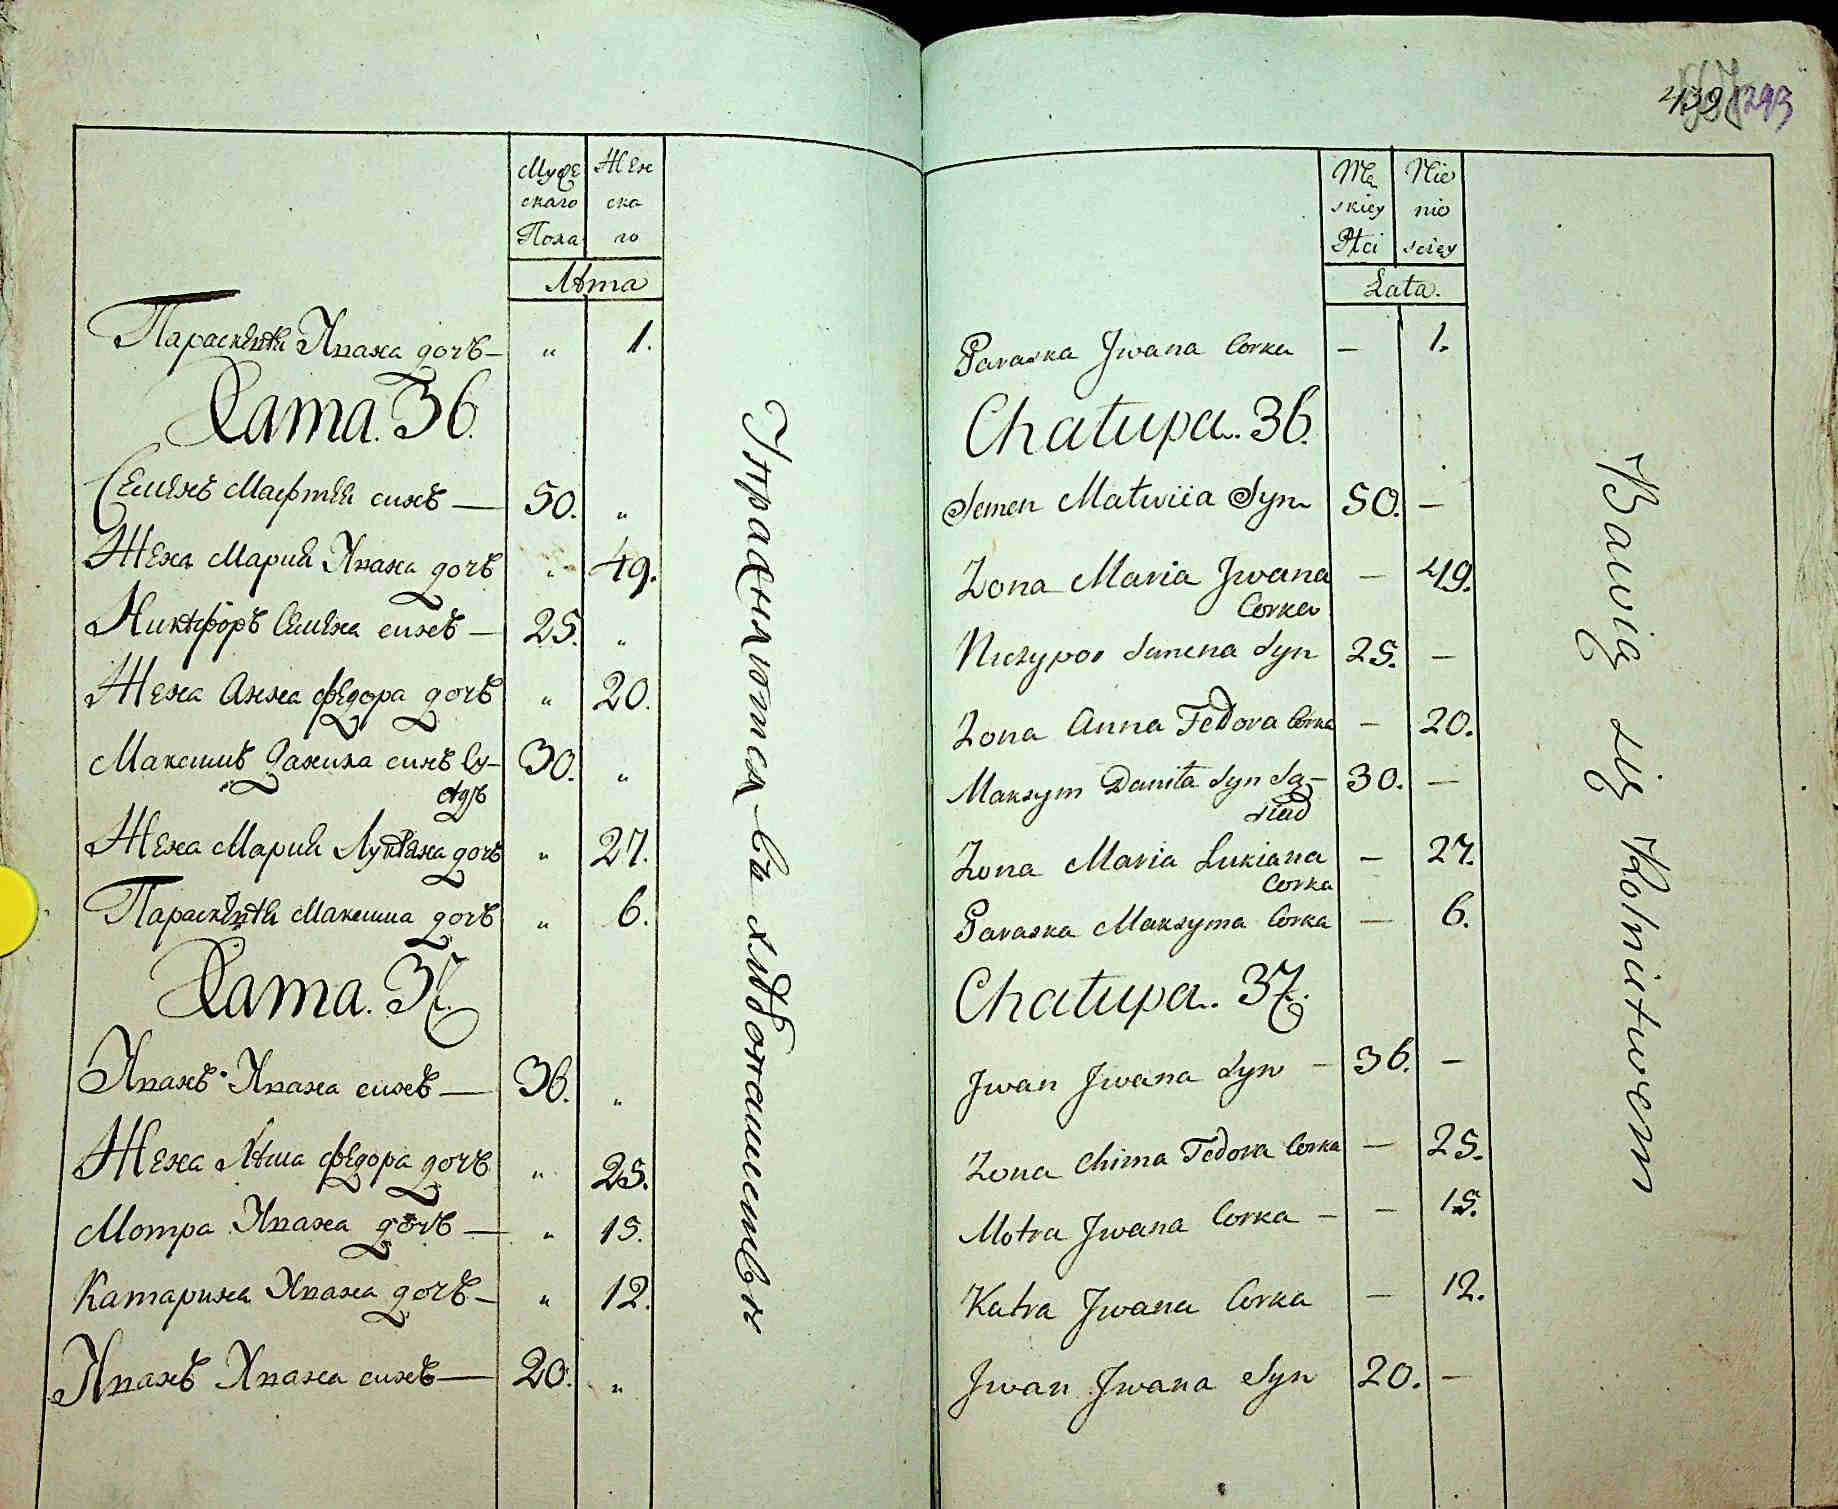 Муже
скаго
Пола
Жен
ска
го
Лѣта
Параскевія Ивана дочь — „ 1.
Хата. 36.
Семенъ Мафтея синъ — 50. „
Жена Марія Ивана дочь „ 49.
Никифоръ Семена синъ — 25. „
Жена Анна Федора дочь „ 20.
Максимъ Данила синъ Су- 30. „
сѣдъ
Жена Марія Лукіяна дочь „ 27.
Параскевія Максима дочь „ 6.
Хата. 37.
Иванъ Ивана синъ — 36. „
Жена Хима Федора дочь „ 25.
Мотра Ивана дочь — „ 15.
Катарина Ивана дочь — „ 12.
Иванъ Ивана синъ — 20. „
Упражняются въ хлѣбопашествѣ
293
Mę
skiey
Płci
Nie
wie
sciey
Lata.
Paraska Jwana Corka — 1.
Chałupa. 36.
Semen Matwiia Syn 50. —
Zona Maria Jwana — 49.
Corka
Niczypor Semena Syn 25. —
Zona Anna Fedora Corka — 20.
Maksym Daniła Syn Są- 30. —
siad
Zona Maria Lukiana — 27.
Corka
Paraska Maksyma Corka — 6.
Chałupa. 37.
Jwan Jwana Syn — 36. —
Zona Chima Fedora Corka — 25.
Motra Jwana Corka — — 15.
Katra Jwana Corka — 12.
Jwan Jwana Syn 20. —
Bawią się Rolnictwem